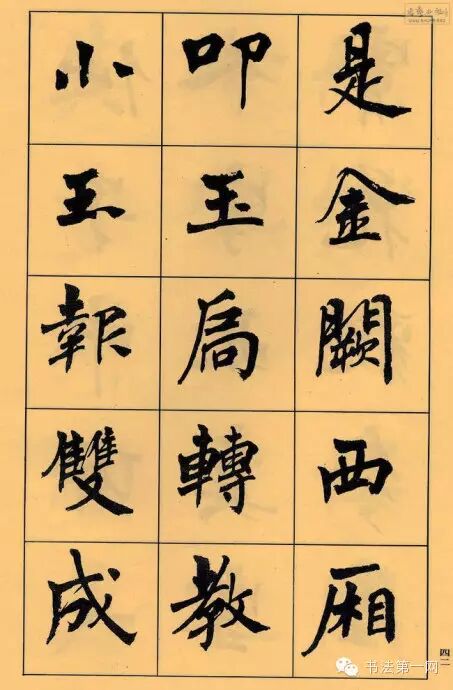 是金闕西厢
叩玉扃轉教
小玉報雙成
四二
书法第一网